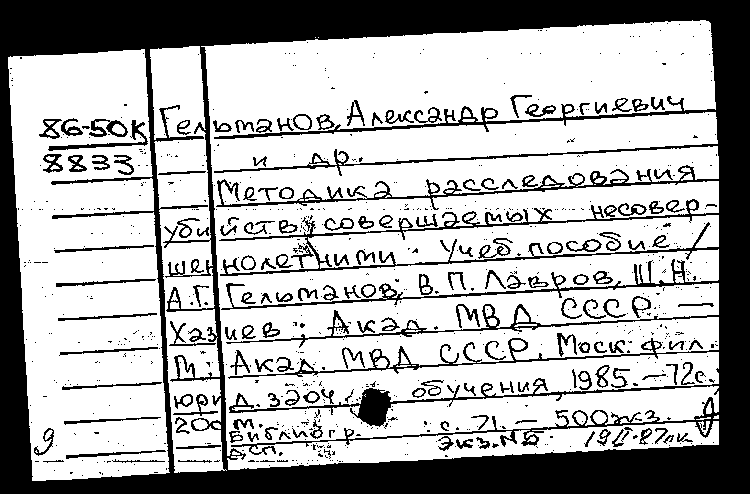 86-50К Гельманов, Александр Георгиевич
8833 и др.
Методика расследования
убийств, совершаемых несовер-
шеннолетними: Учеб. пособие /
А.Г. Гельманов, В.П. Лавров, Ш.Н.
Хазиев; Акад. МВД СССР. —
М.: Акад. МВД СССР. Моск. фил.
юрид. заоч. обучения, 1985. — 72 с.;
20 см.
Библиогр.: с. 71. — 500 экз.
ДСП. Экз. №Б
9